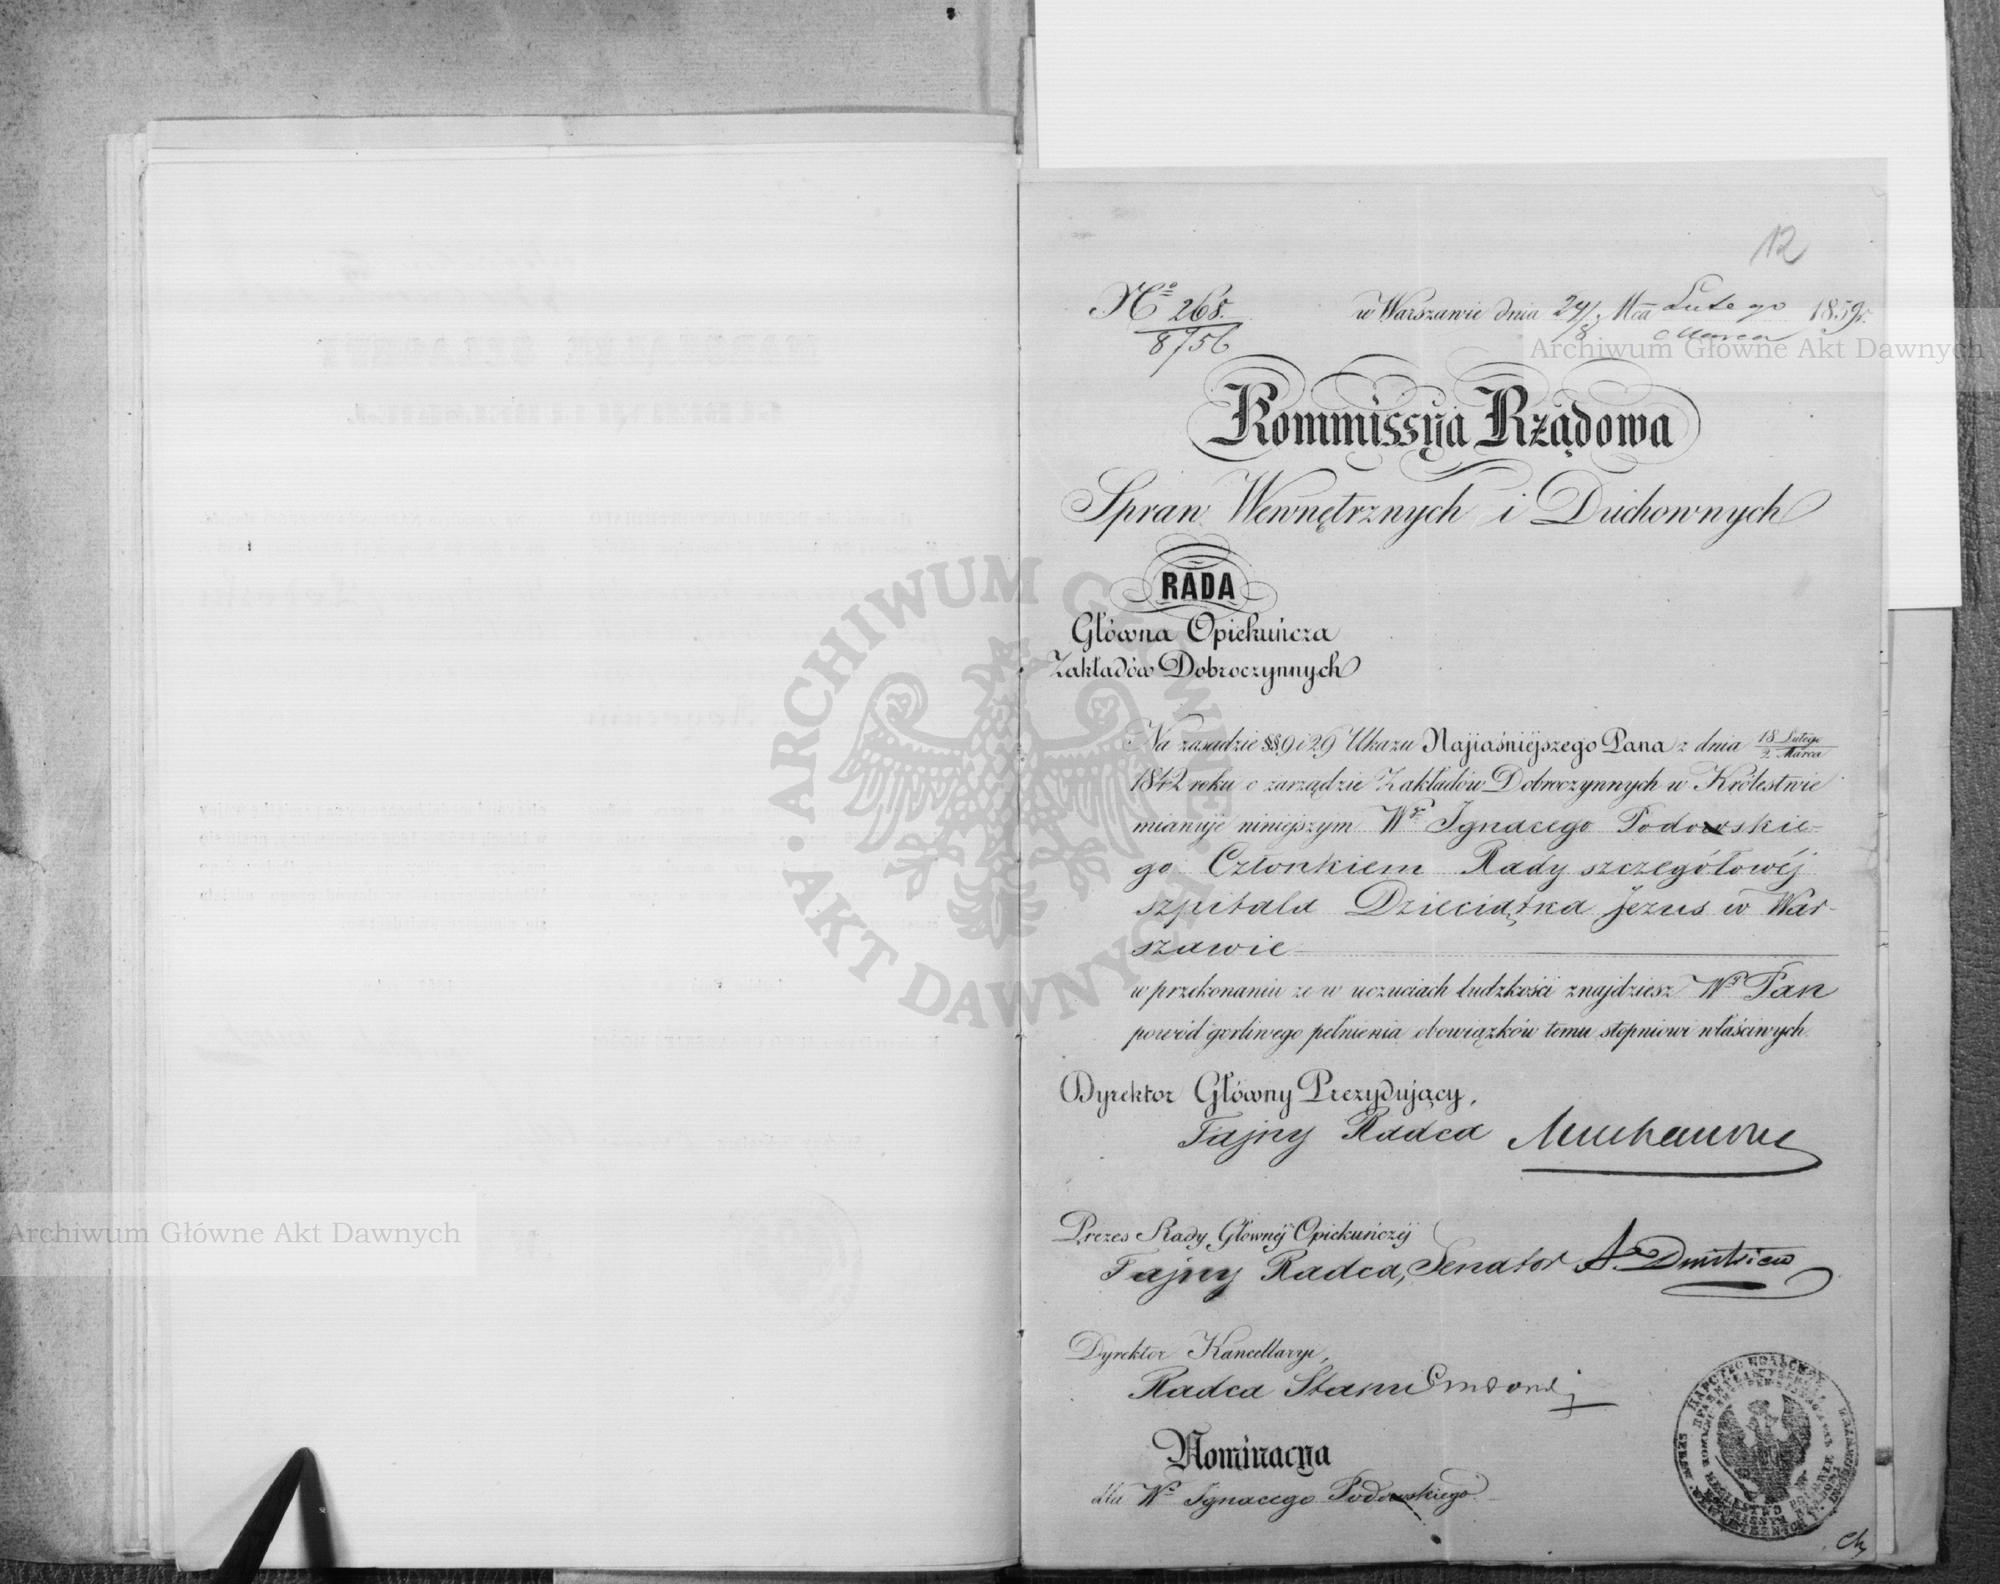 12
Nº 268.
8756
w Warszawie dnia 24/8 Mca Lutego 1859 r.
Marca
Archiwum Główne Akt Dawnych
Kommissya Rządowa
Spraw Wewnętrznych i Duchownych
RADA
Główna Opiekuńcza
Zakładów Dobroczynnych
Na zasadzie §§ 9 i 29 Ukazu Najiaśniejszego Pana z dnia 18 Lutego
2 Marca
1842 roku o zarządzie Zakładów Dobroczynnych w Królestwie
mianuje niniejszym Wgo Ignacego Podowskie-
go Członkiem Rady szczegółowéj
szpitala Dzieciątka Jezus w War-
szawie
w przekonaniu że w uczuciach ludzkości znajdziesz Wy Pan
powód gorliwego pełnienia obowiązków temu stopniowi właściwych.
Dyrektor Główny Prezydujący,
Tajny Radca Muchanow
Prezes Rady Głównéj Opiekuńczéj
Tajny Radca, Senator A. Dmitriew
Dyrektor Kancellaryi,
Radca Stanu
Nominacya
dla Wo Ignacego Podowskiego.
ARCHIWUM GŁÓWNE AKT DAWNYCH
Archiwum Główne Akt Dawnych